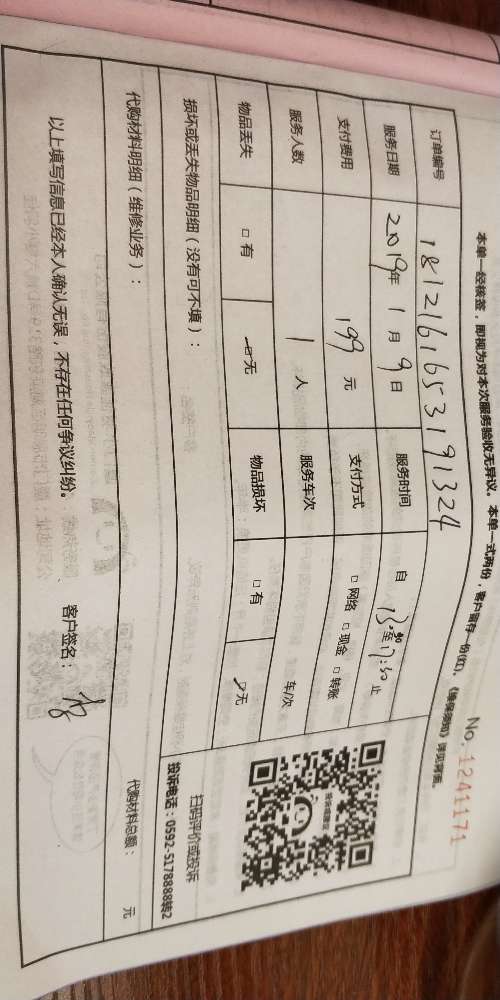 No. 1241171
本单一经核签，即视为对本次服务验收无异议。本单一式两份，客户留存一份(红)，《维保须知》详见背面。
订单编号 1812161653191324
服务日期 2019年 1月 9日 服务时间 自 13:30至17:30止
支付费用 199 元 支付方式 □网络 □现金 □转账
服务人数 1 人 服务车次 车/次
物品丢失 □有 ☑无 物品损坏 □有 ☑无
损坏或丢失物品明细（没有可不填）：
扫码评价或投诉
投诉电话：0592-5178888转2
代购材料明细（维修业务）：
代购材料总额： 元
以上填写信息已经本人确认无误，不存在任何争议纠纷。 客户签名：